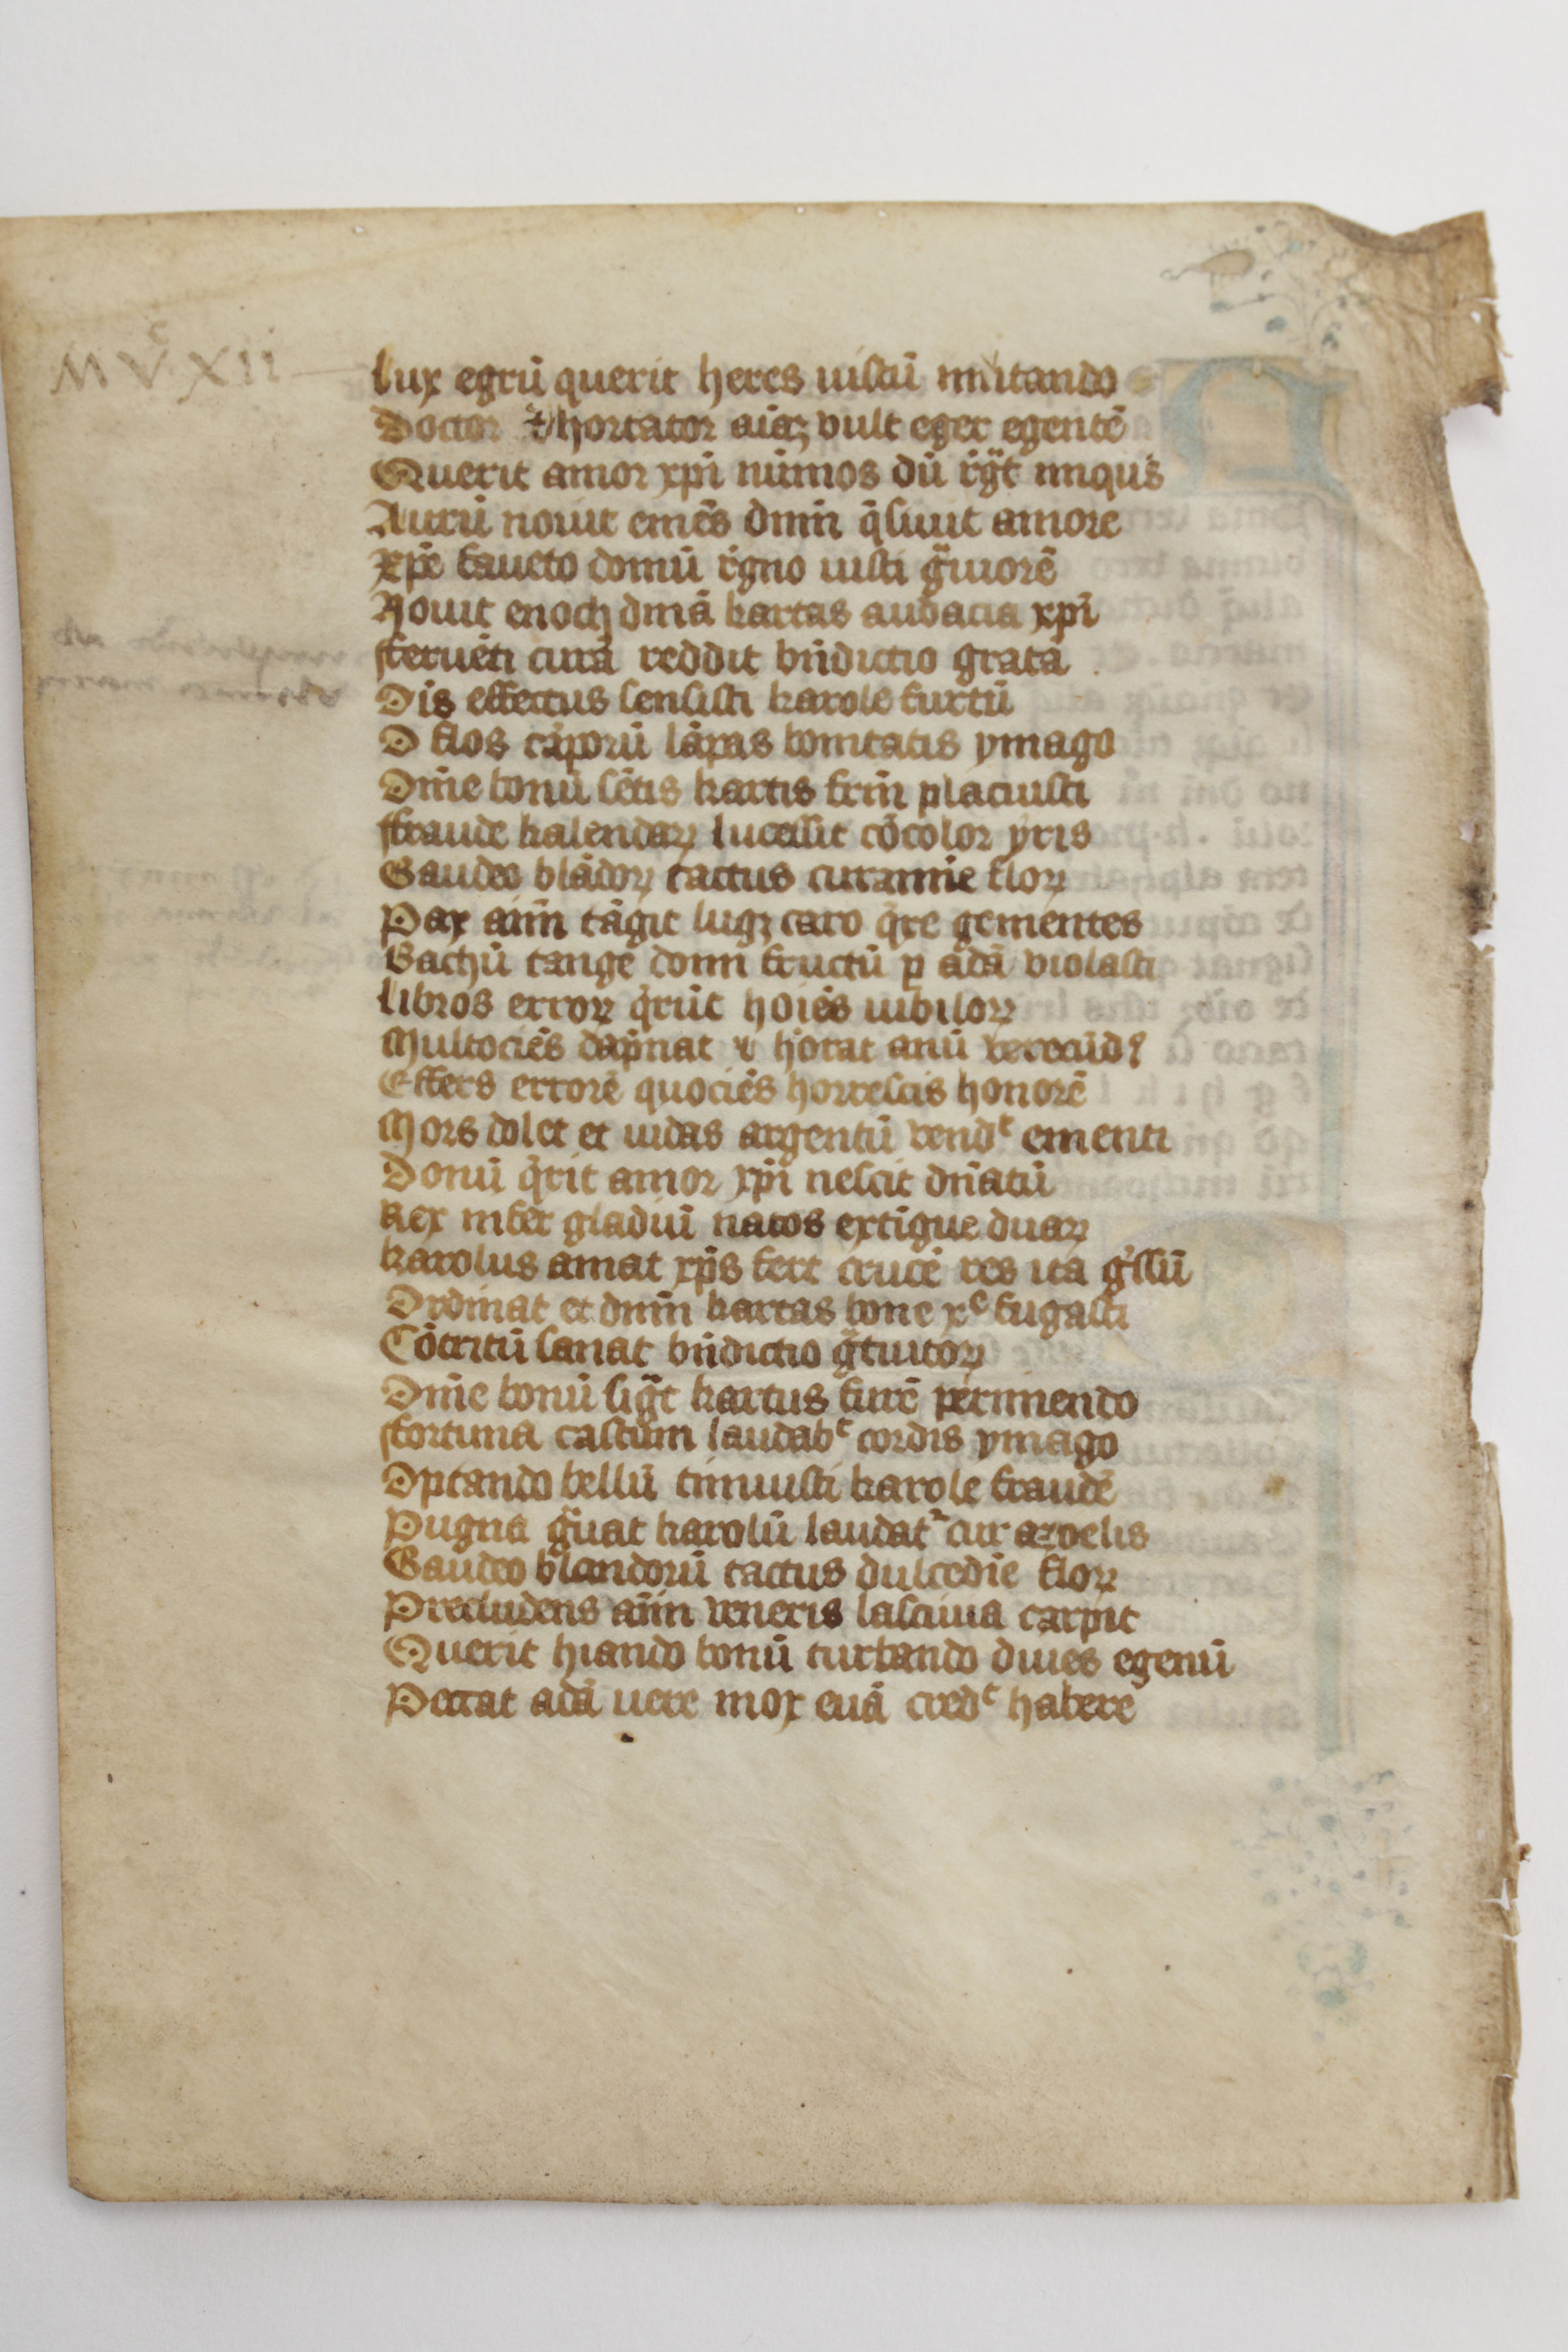 MVᶜXII
lux egrū querit heres iustū mutando
Doctor ⁊ hortator aīaꝝ vult eger egentē
Querit amor xp̄i nūmos dū rg̈t iniqus
Aurū nouit emēs dnm̄ q̄siuit amore
xp̄e faueto domū rˈgno iusti gᵃuiorē
Nouit enoch dmā kartas audacia xp̄i
fferuēti curā reddit bn̄dictio grata
Dis effectus sensisti karole furtū
O flos cāporū lāpas bonitatis ymago
Dn̄ie bonū sētis kartis frm̄ placuisti
ffraude kalendaꝝ lucessit cōcolor yris
Gaudeo blādoꝝ tactus curamīe floꝝ
Pax aīm tāgit lugꝫ caro q̄re gementes
Bachū tange domi fructū ꝑ adā violasti
libros erroꝝ q̄rūt hoīes iubiloꝝ
Multociēs dāpnat ⁊ horat anū verecūdꝰ
Effers errorē quociēs horrescis honorē
Mors dolet et iudas argentū vendᵗ ementi
Donū q̄rit amor xp̄i nescit dn̄atū
Rex infer gladiū natos extīgue duaꝝ
karolus amat xp̄s fert crucē res ita
Ordinat et dnm̄ kartas bone xᵉ fugasti
Cōtritū sanat bn̄dictio gᵃtuitoꝝ
Dn̄ie bonū sigᵃt kartus furē perimendo
ffortuna castum laudabᵗ cordis ymago
Optando bellū timuisti karole fraudē
Pugna gᵃuat karolū laudatˀ cur
Gaudeo blandorū tactus dulcedīe floꝝ
Precludens aīm veneris lasciuia carpit
Querit hiando bonū turbando diues egenū
Peccat adā uere mox euā credᵗ habere